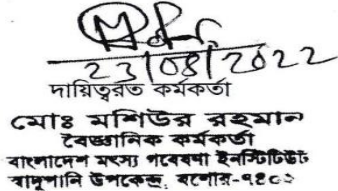 23/08/2022
দায়িত্বরত কর্মকর্তা
মোঃ মশিউর রহমান
বৈজ্ঞানিক কর্মকর্তা
বাংলাদেশ মৎস্য গবেষণা ইনস্টিটিউট
স্বাদুপানি উপকেন্দ্র, যশোর-৭৪০১